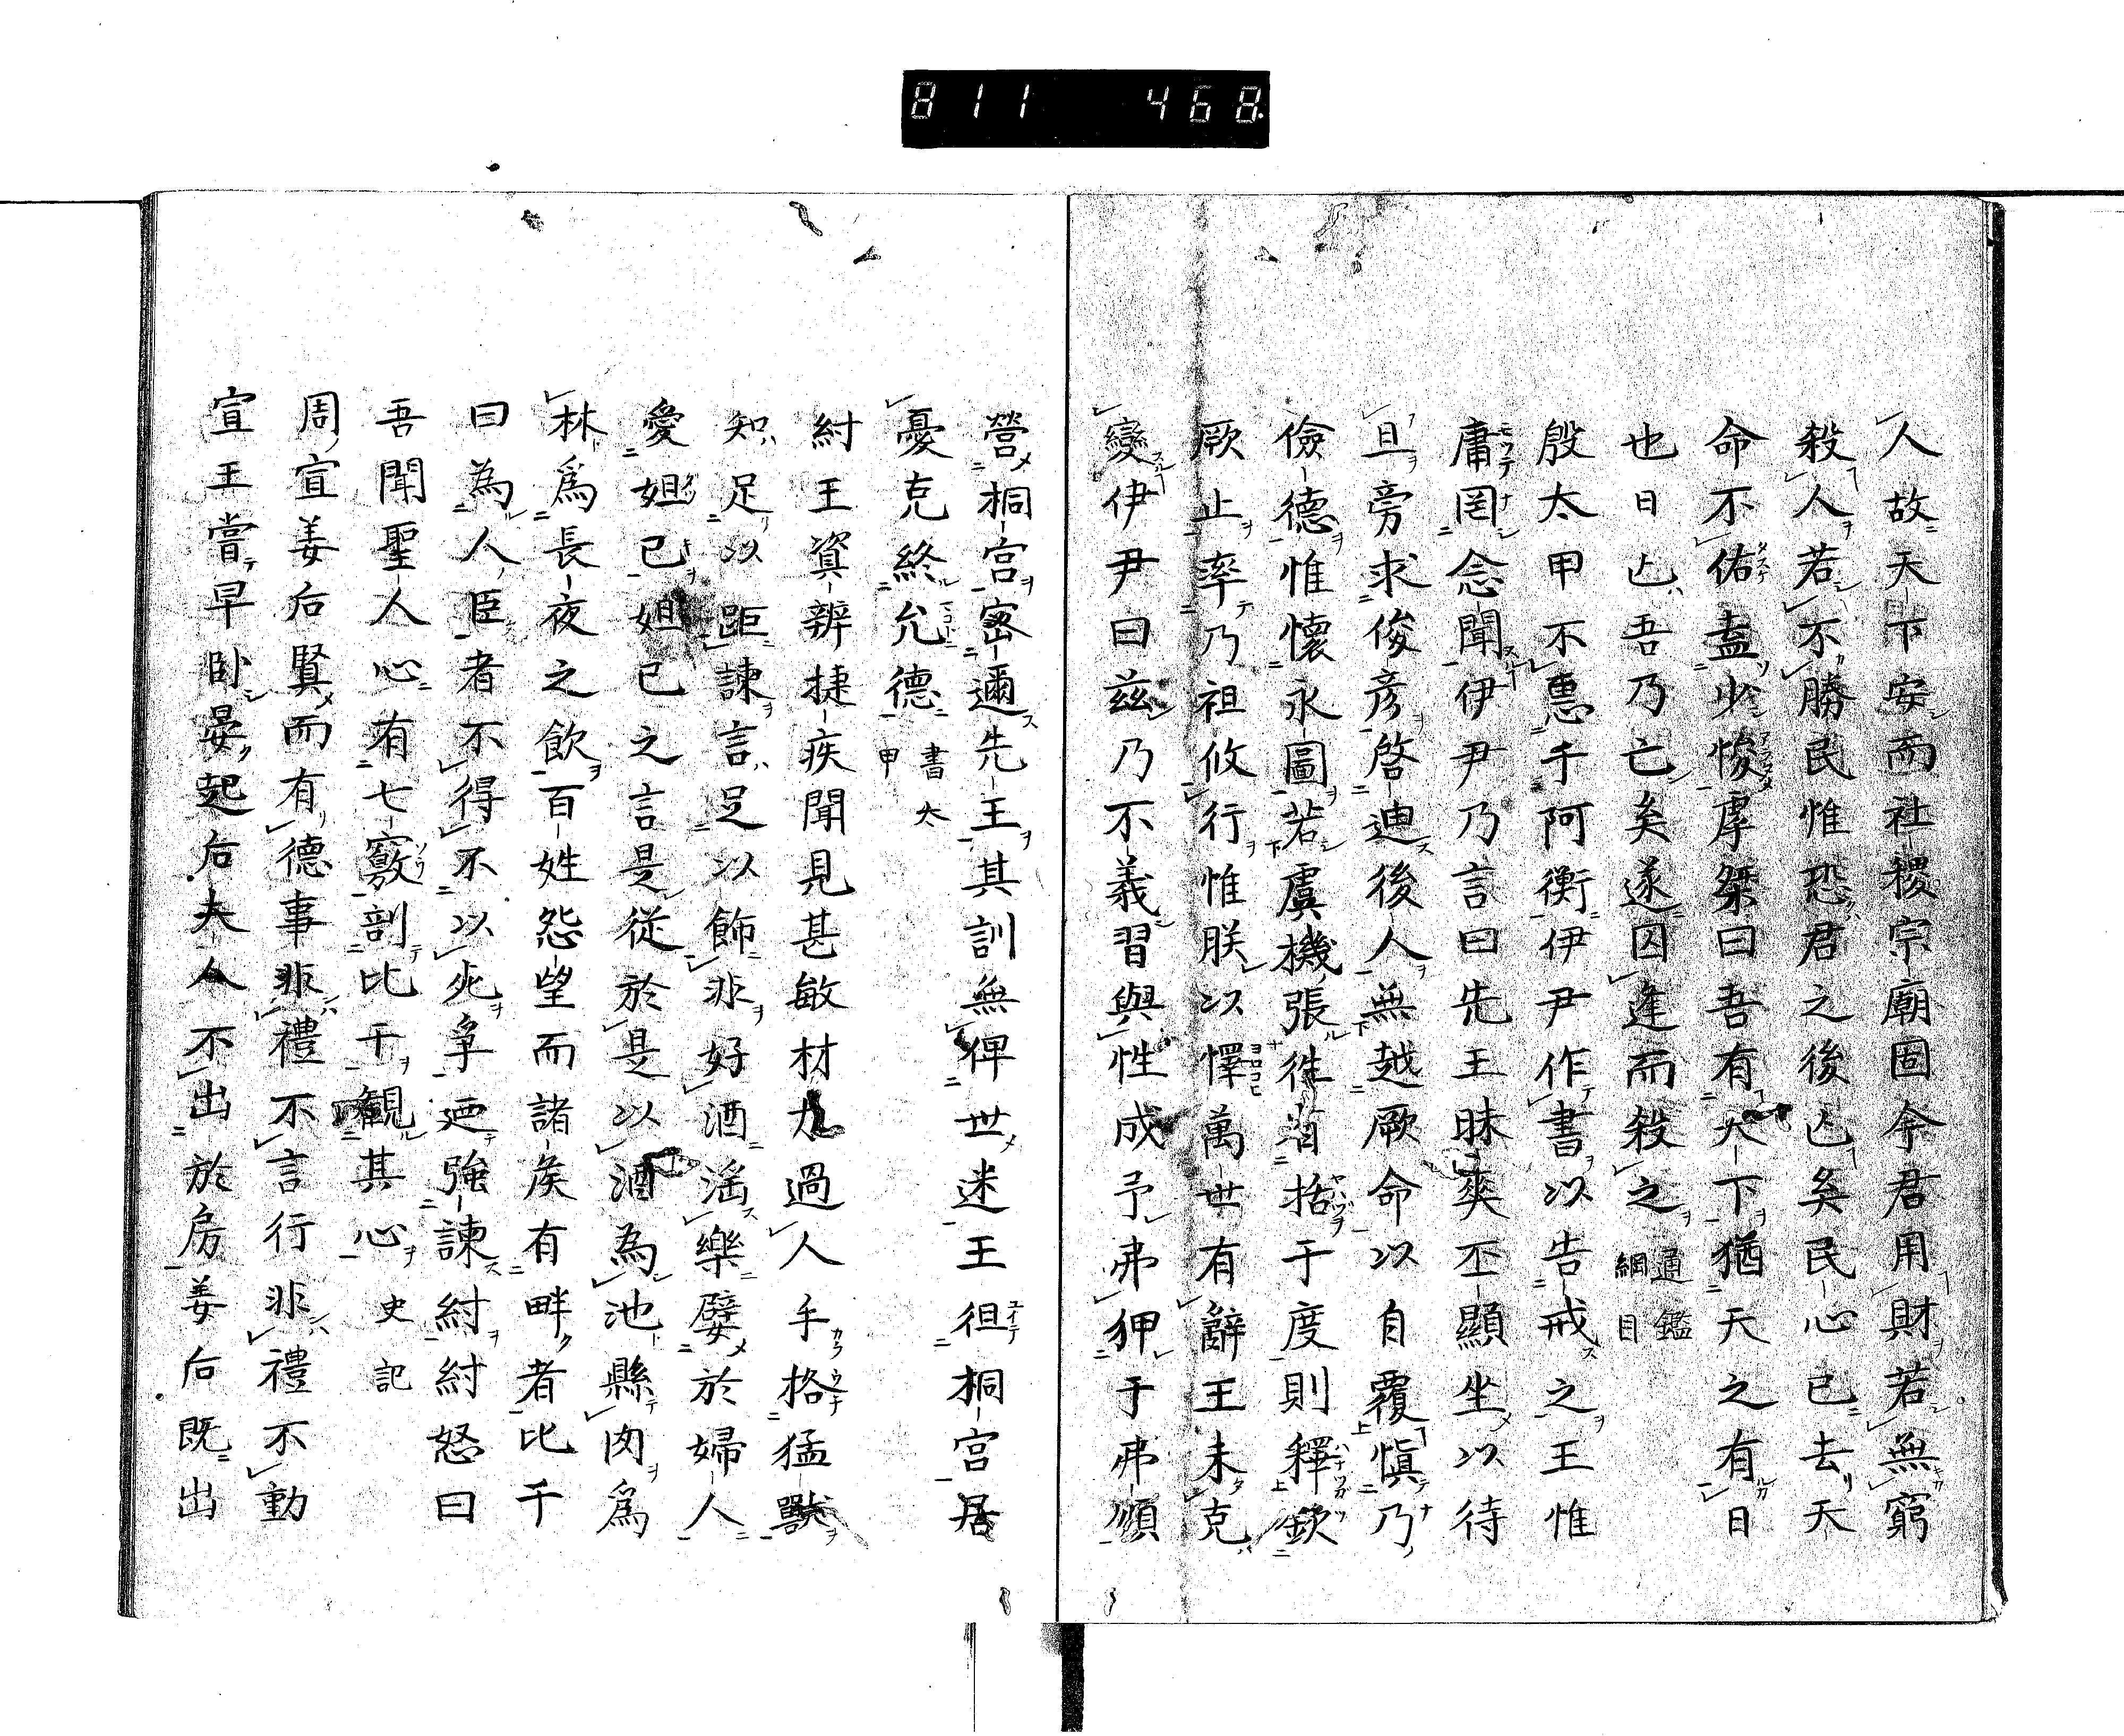 811 468
人故天下安而社稷宗廟固今君用財若無窮
殺人若不勝民惟恐君之後亾矣民心已去天
命不佑盍少悛虖桀曰吾有天下猶天之有日
也日亾吾乃亡矣遂囚逢而殺之 通鑑綱目
殷太甲不惠于阿衡伊尹作書以告戒之王惟
庸罔念聞伊尹乃言曰先王昧爽丕顯坐以待
旦旁求俊彦啓迪後人無越厥命以自覆愼乃
儉德惟懷永圖若虞機張徃省括于度則釋欽
厥止率乃祖攸行惟朕以懌萬世有辭王未克
變伊尹曰茲乃不義習與性成予弗狎于弗順
營桐宮密邇先王其訓無俾世迷王徂桐宮居
憂克終允德 書太甲
紂王資辨捷疾聞見甚敏材力過人手格猛獸
知足以距諫言足以飾非好酒滛樂嬖於婦人
愛妲己妲己之言是從於是以酒為池縣肉爲
林爲長夜之飲百姓怨望而諸矦有畔者比干
曰為人臣者不得不以死爭廼強諫紂紂怒曰
吾聞聖人心有七竅剖比干觀其心 史記
周宣姜后賢而有德事非禮不言行非禮不動
宣王嘗早卧晏起后夫人不出於房姜后既出